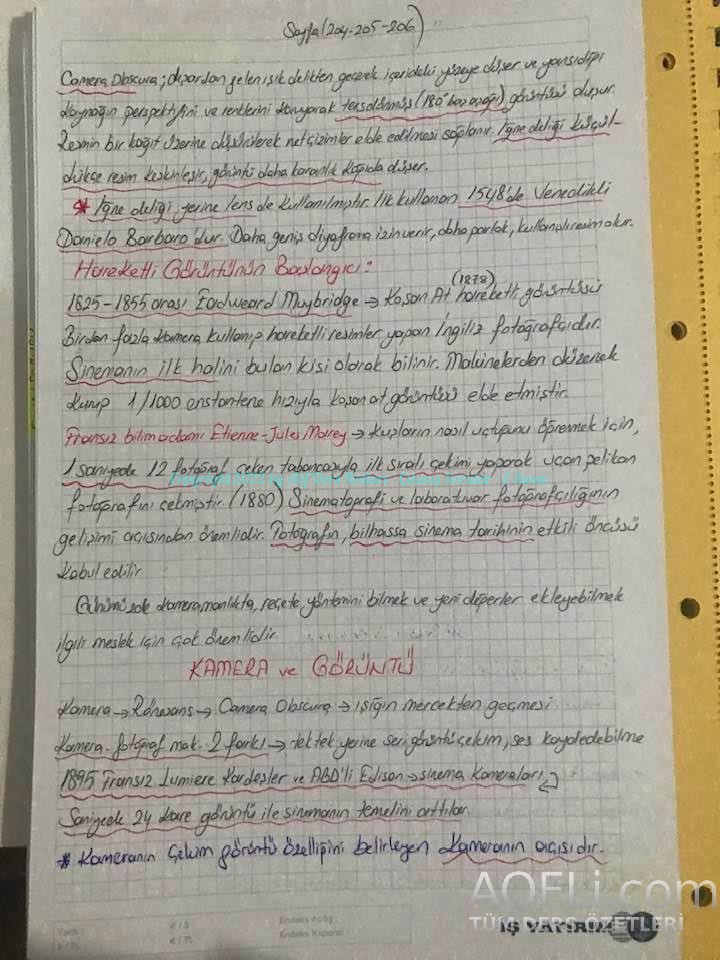 Sayfa (204-205-206)
Camera Obscura; dışardan gelen ışık delikten geçerek içerideki yüzeye düşer ve yansıdığı
kaynağın perspektifini ve renklerini koruyarak tersdönmüş (180° baş aşağı) görüntüsü oluşur.
Resmin bir kağıt üzerine düşürülerek net çizimler elde edilmesi sağlanır. İğne deliği küçül-
dükçe resim keskinleşir, görüntü daha karanlık kağıda düşer.
* İğne deliği yerine lens de kullanılmıştır. İlk kullanan 1548'de Venedikli
Danielo Barbaro'dur. Daha geniş diyaframa izin verir, daha parlak, kullanışlı resim olur.
Hareketli Görüntünün Başlangıcı:
(1878)
1825-1855 arası Eadweard Muybridge → Koşan At hareketli görüntüsü
Birden fazla kamera kullanıp hareketli resimler yapan İngiliz fotoğrafçıdır.
Sinemanın ilk halini bulan kişi olarak bilinir. Makinelerden düzenek
kurup 1/1000 enstantene hızıyla koşan at görüntüsü elde etmiştir.
Fransız bilim adamı Etienne-Jules Marey → kuşların nasıl uçtuğunu öğrenmek için,
1 saniyede 12 fotoğraf çeken tabancasıyla ilk sıralı çekimi yaparak uçan pelikan
fotoğrafını çekmiştir. (1880) Sinematografi ve laboratuvar fotoğrafçılığının
gelişimi açısından önemlidir. Fotoğrafın, bilhassa sinema tarihinin etkili öncüsü
kabul edilir.
Günümüzde kameramanlıkta, reçete, yöntemini bilmek ve yeni değerler ekleyebilmek
ilgili meslek için çok önemlidir.
KAMERA ve GÖRÜNTÜ
Kamera → Rönesans → Camera Obscura → ışığın mercekten geçmesi
Kamera - fotoğraf mak. 2 farkı → tek tek yerine seri görüntü çekim, ses kaydedebilme
1895 Fransız Lumiere Kardeşler ve ABD'li Edison → sinema kameraları
Saniyede 24 kare görüntü ile sinemanın temelini attılar.
* Kameranın çekim görüntü özelliğini belirleyen kameranın açısıdır.
AOFLi.com
TÜM DERS ÖZETLERİ
İŞ YATIRIM